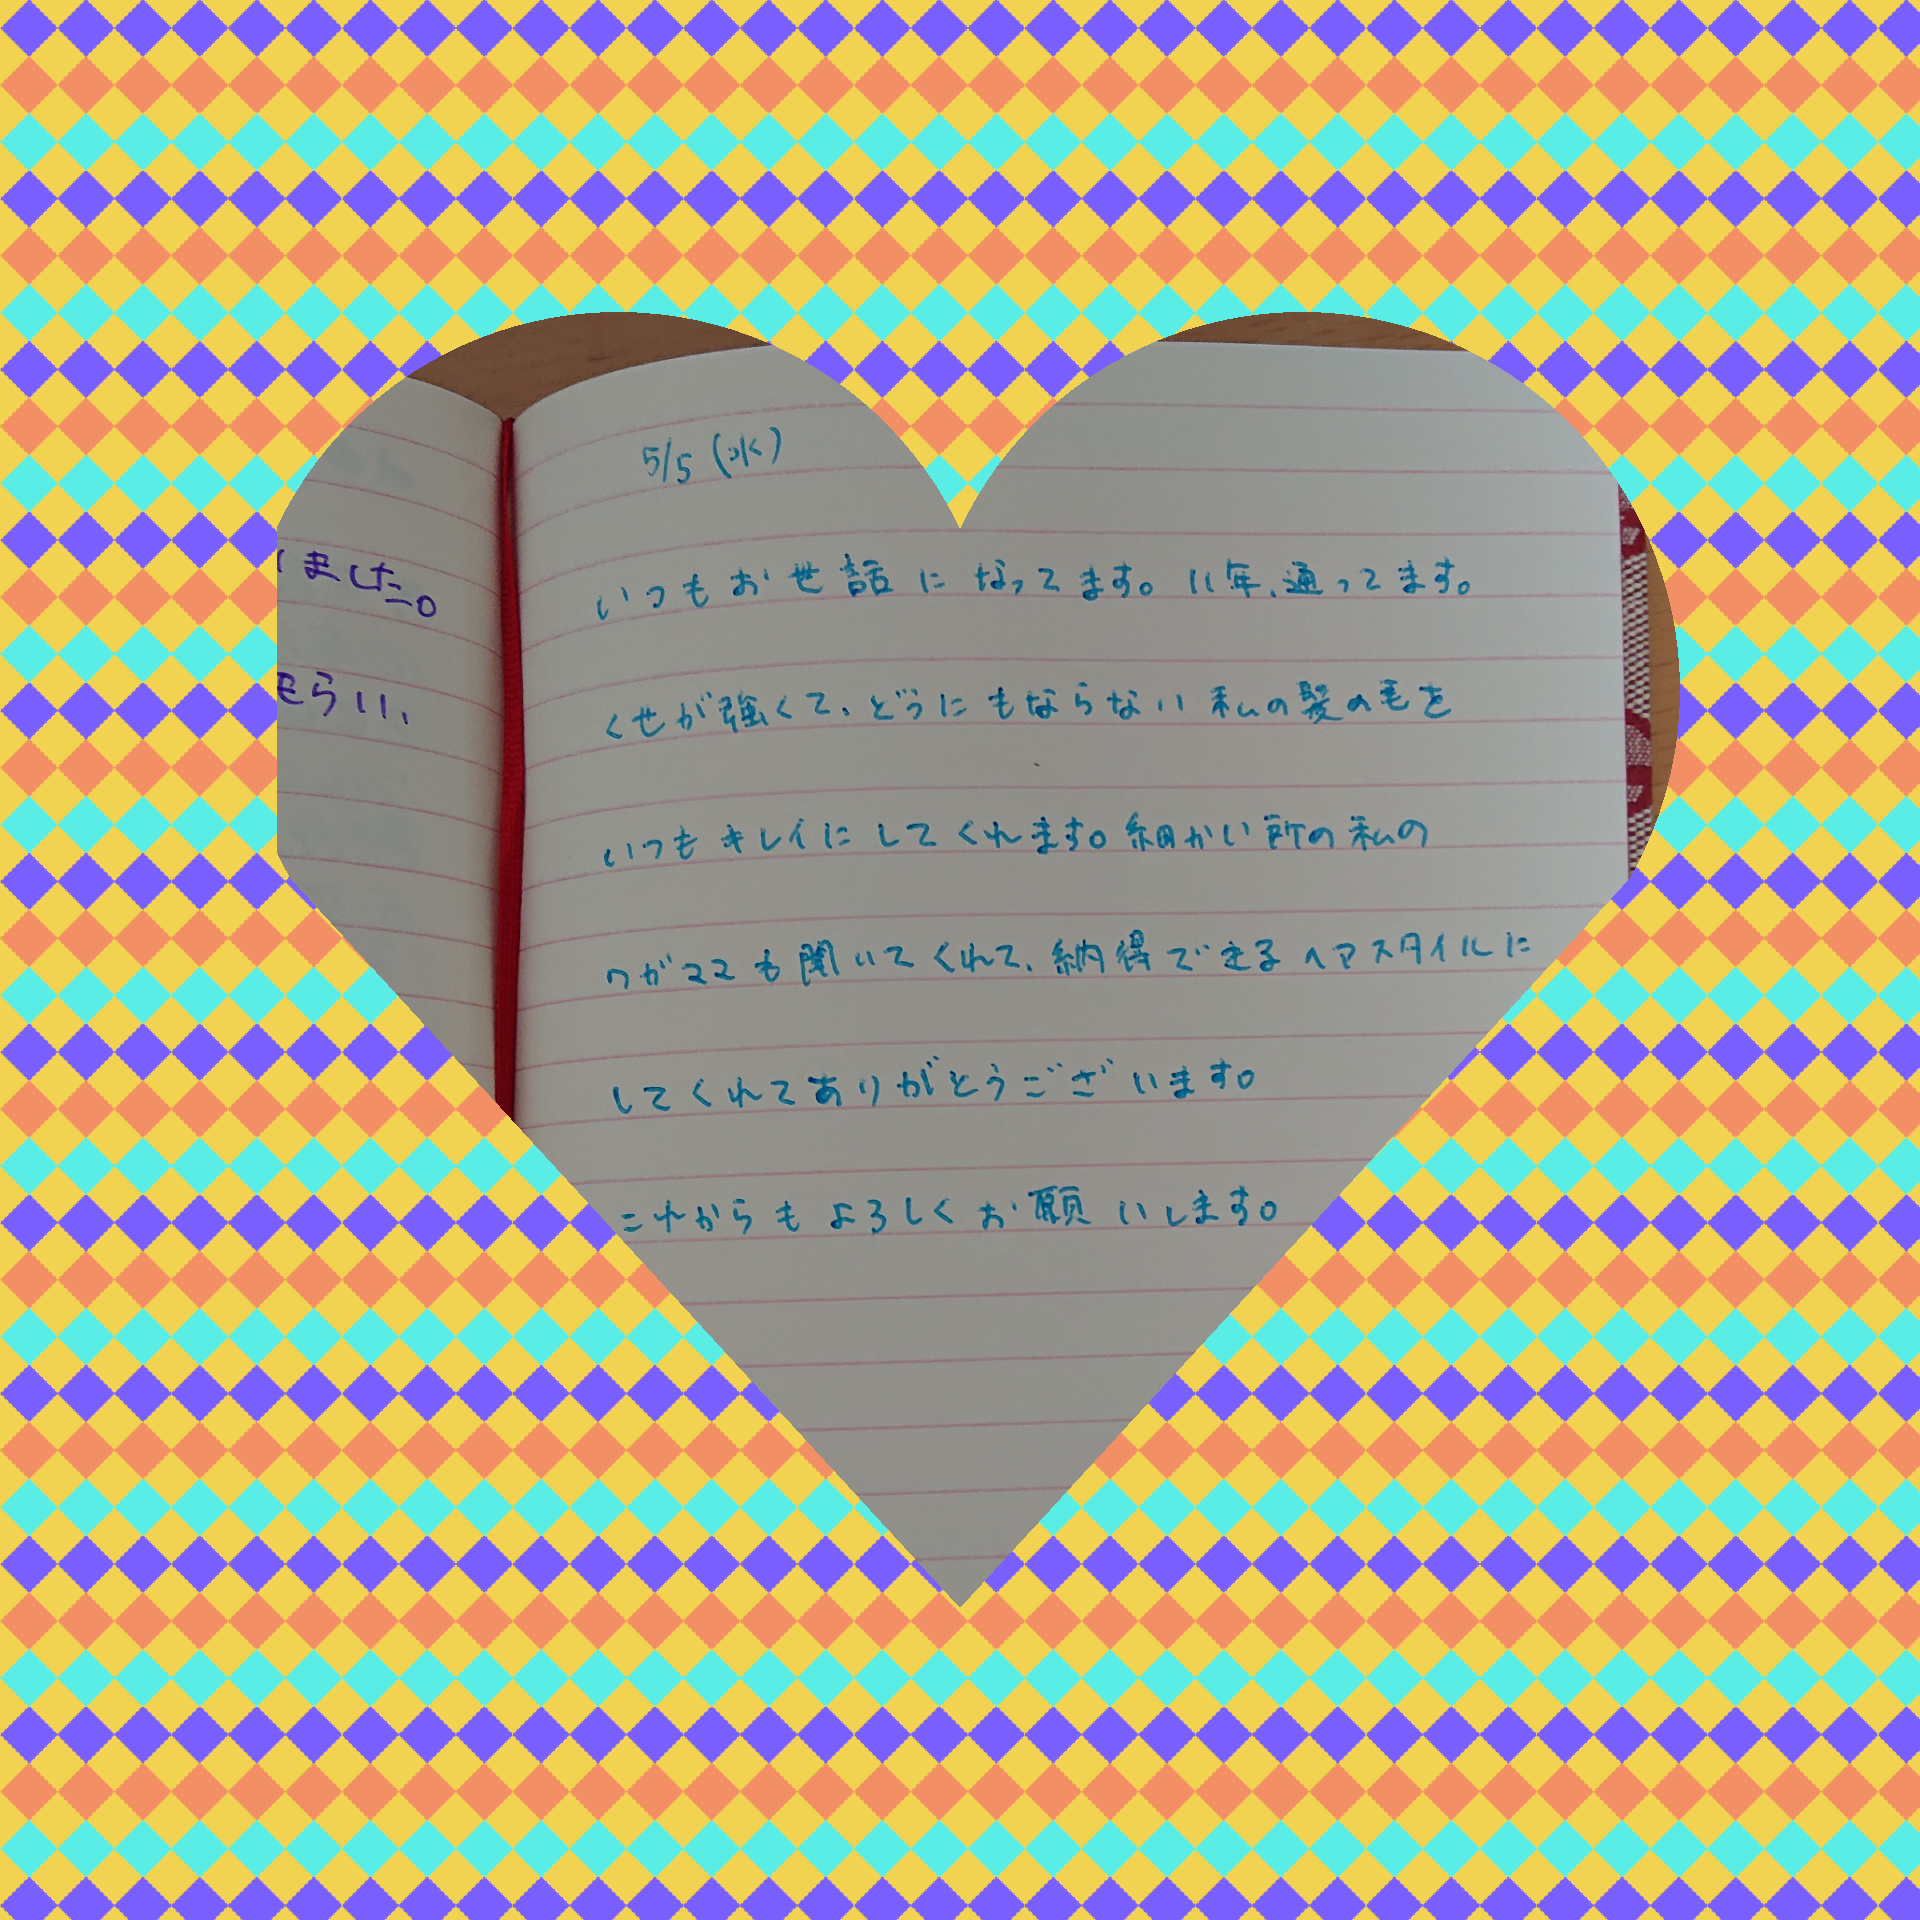 ました。
もらい、
5/5 (水)
いつもお世話になってます。11年、通ってます。
くせが強くて、どうにもならない私の髪の毛を
いつもキレイにしてくれます。細かい所の私の
ワガママも聞いてくれて、納得できるヘアスタイルに
してくれてありがとうございます。
これからもよろしくお願いします。